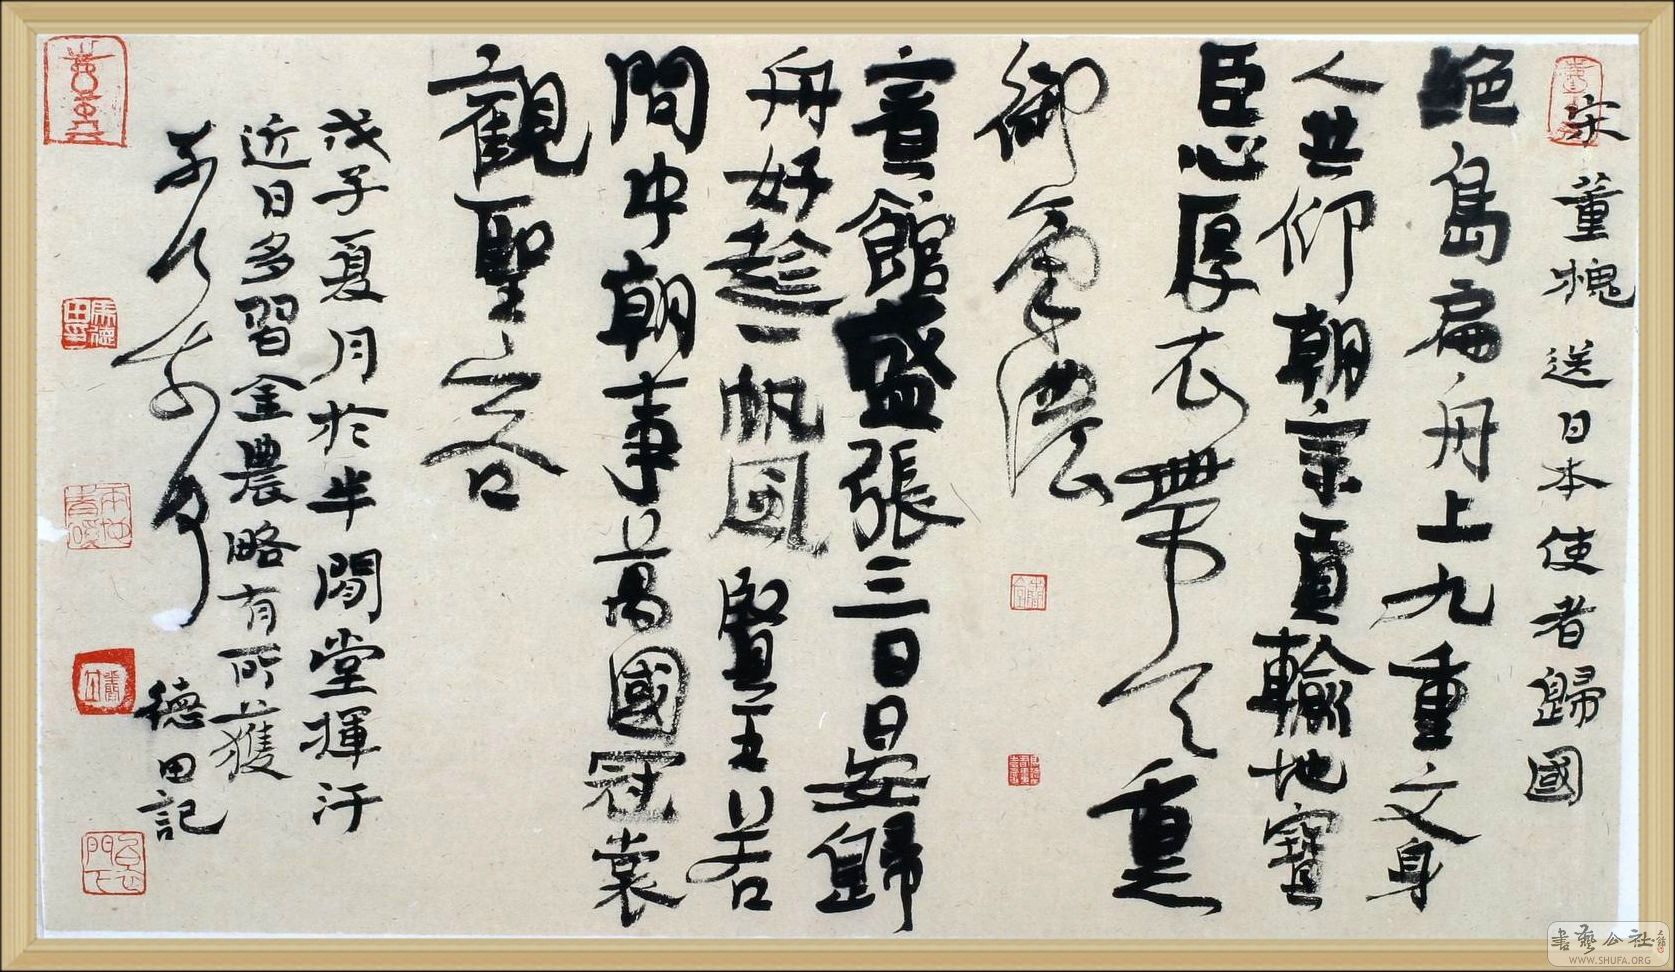 宋董槐送日本使者歸國
絕島扁舟上九重文身
人共仰朝宗貢輸地寶
臣心厚衣帶天
御氣濃
賓館盛張三日晏歸
舟好趁一帆風賢王若
問中朝事萬國冠裳
觀聖容
戊子夏月於半閒堂揮汗
近日多習金農略有所獲
德田記
書藝公社
WWW.SHUFA.ORG